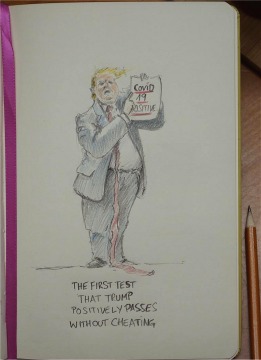 Covid
19
POSITIVE
THE FIRST TEST
THAT TRUMP
POSITIVELY PASSES
WITHOUT CHEATING